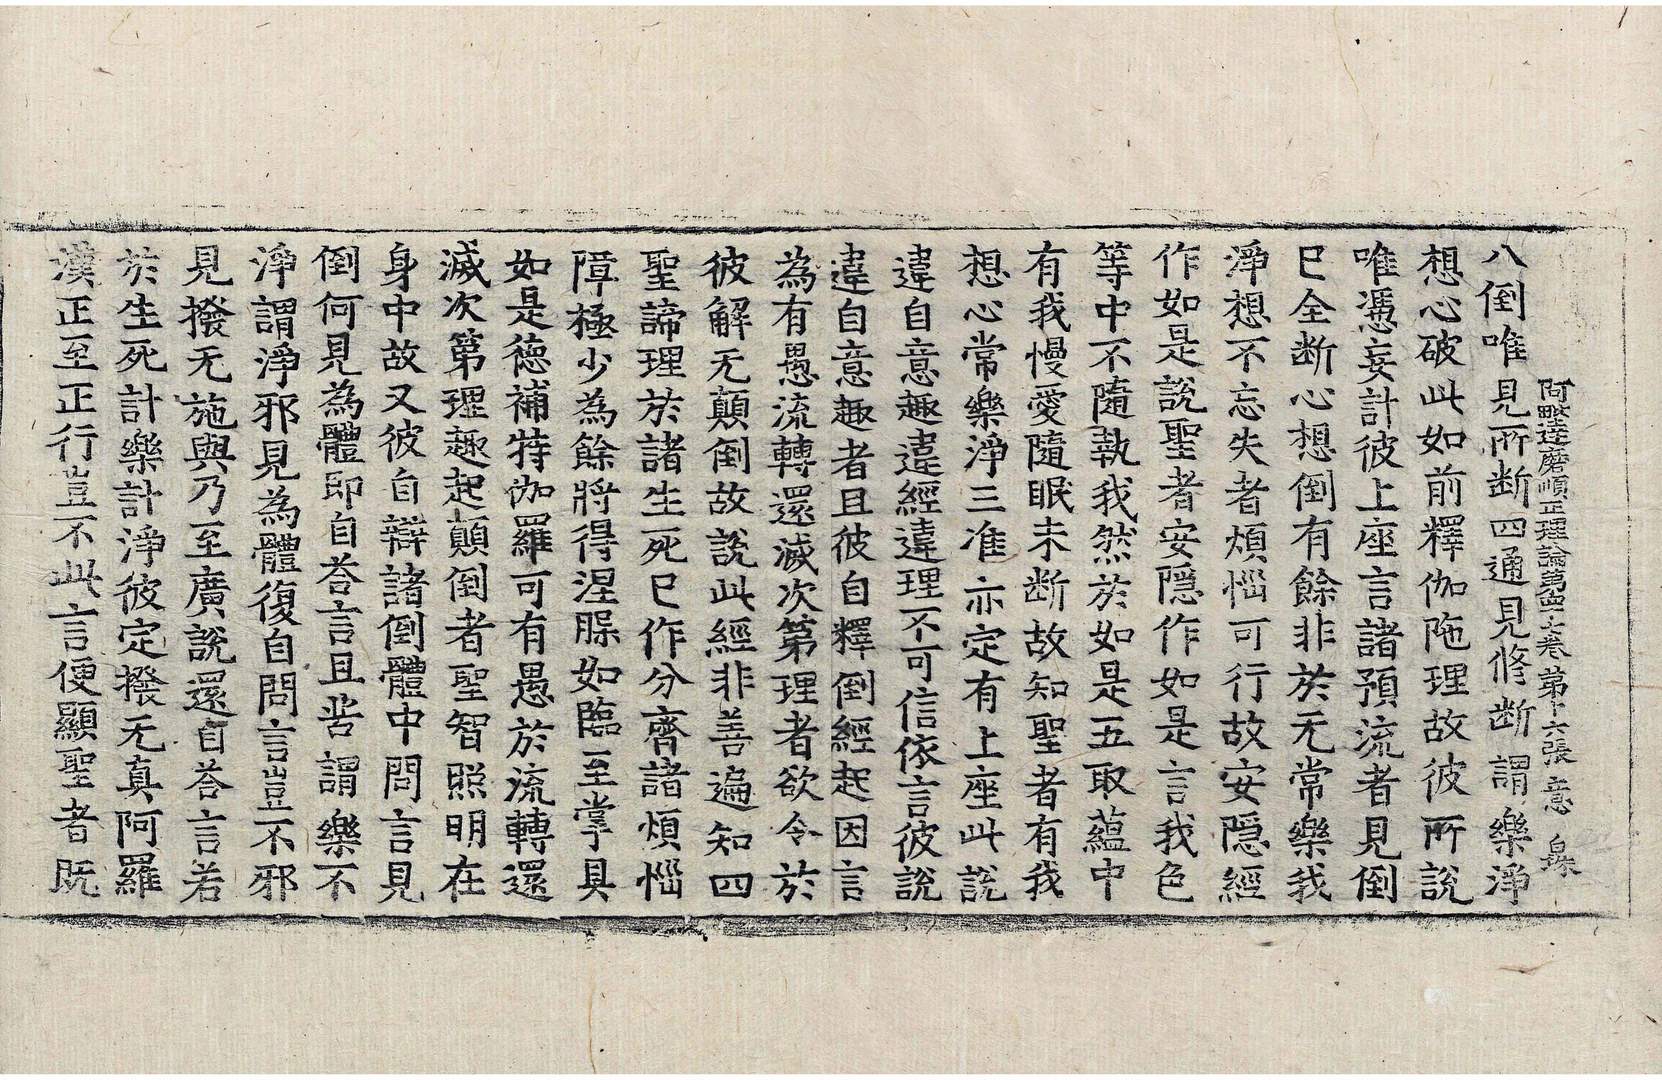 阿毗達磨順正理論第四十七卷 第十六張 意
八倒唯見所斷四通見修斷謂樂淨
想心破此如前釋伽陁理故彼所說
唯憑妄計彼上座言諸預流者見倒
已全斷心想倒有餘非於无常樂我
淨想不忘失者煩惱可行故安隱經
作如是說聖者安隱作如是言我色
等中不隨執我然於如是五取蘊中
有我慢愛隨眠未斷故知聖者有我
想心常樂淨三准亦定有上座此說
違自意趣違經違理不可信依言彼說
違自意趣者且彼自釋倒經起因言
為有愚流轉還滅次第理者欲令於
彼解无顛倒故說此經非善遍知四
聖諦理於諸生死已作分齊諸煩惱
障極少為餘將得涅脲如臨至掌具
如是德補特伽羅可有愚於流轉還
滅次第理趣起顛倒者聖智照明在
身中故又彼自辯諸倒體中問言見
倒何見為體即自荅言且苦謂樂不
淨謂淨邪見為體復自問言豈不邪
見撥无施與乃至廣說還自荅言若
於生死計樂計淨彼定撥无真阿羅
漢正至正行豈不此言便顯聖者既